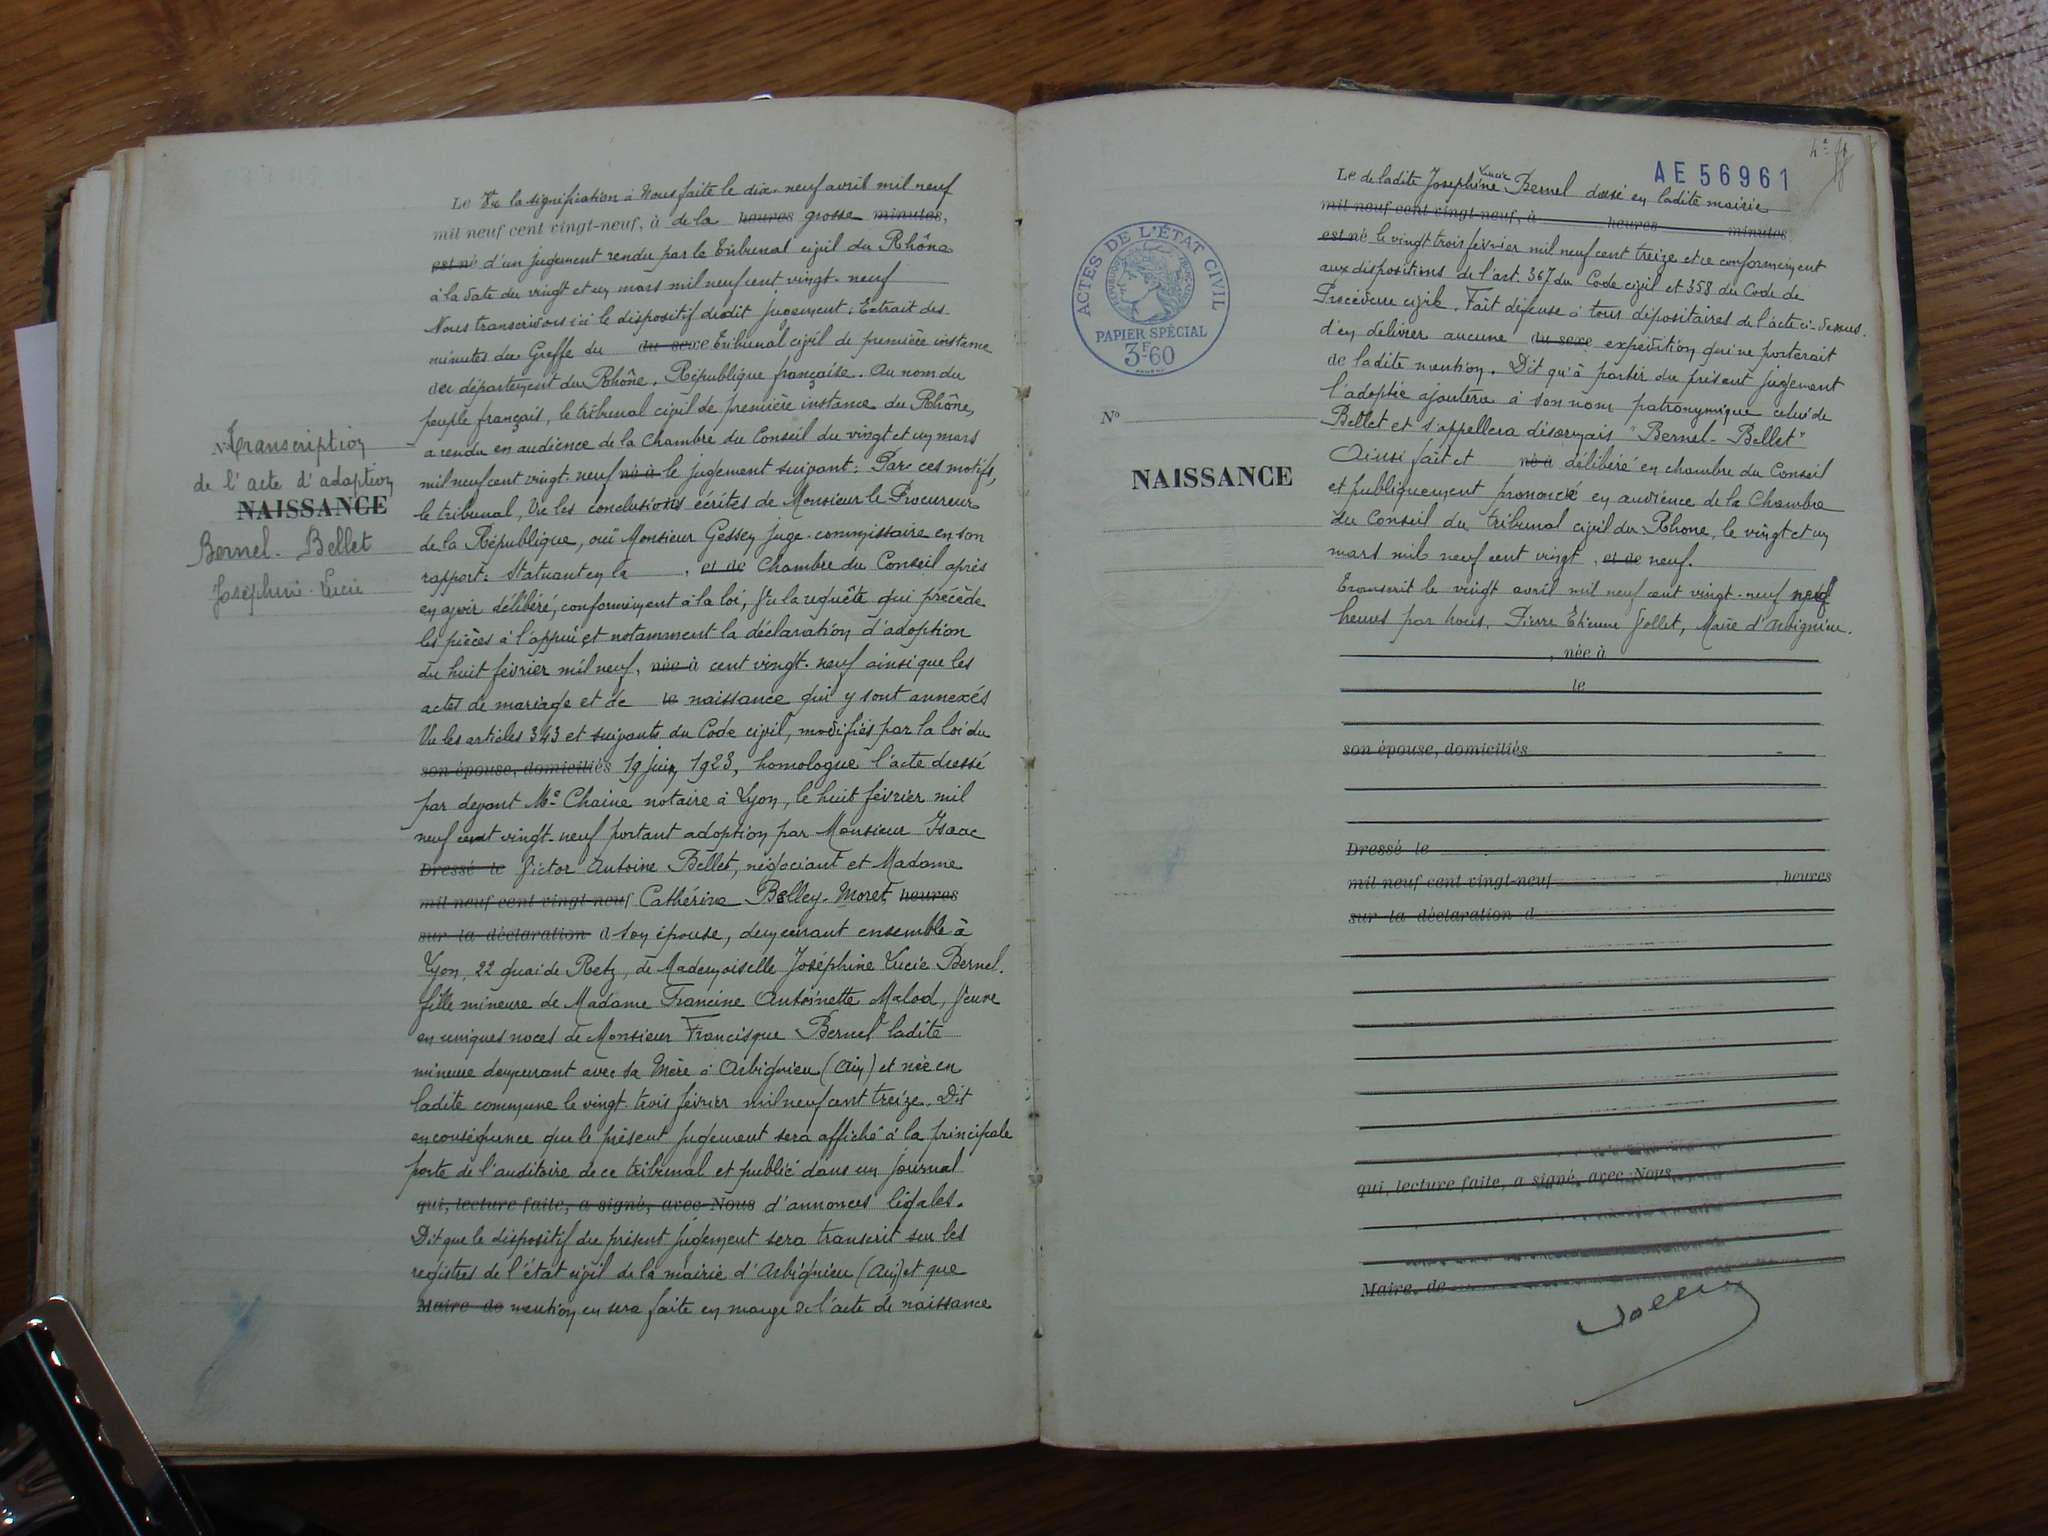 Transcription
de l'acte d'adoption
NAISSANCE
Bernel-Bellet
Joséphine-Lucie
Le Vu la signification à Nous faite le dix-neuf avril mil neuf
mil neuf cent vingt-neuf, à de la heures grosse minutes,
est né d'un jugement rendu par le Tribunal civil du Rhône
à la date du vingt et un mars mil neuf cent vingt-neuf
Nous transcrivons ici le dispositif dudit jugement : Extrait des
minutes du Greffe du du sexe Tribunal civil de première instance
du département du Rhône. République française. Au nom du
peuple français, le tribunal civil de première instance du Rhône,
a rendu en audience de la Chambre du Conseil du vingt et un mars
mil neuf cent vingt-neuf né à le jugement suivant : Par ces motifs,
le tribunal, Vu les conclusions écrites de Monsieur le Procureur
de la République, ouï Monsieur Gessey juge-commissaire en son
rapport : Statuant en la , et de Chambre du Conseil après
en avoir délibéré, conformément à la loi, Vu la requête qui précède
les pièces à l'appui et notamment la déclaration d'adoption
du huit février mil neuf, née à cent vingt-neuf ainsi que les
actes de mariage et de le naissance qui y sont annexés
Vu les articles 343 et suivants du Code civil, modifiés par la loi du
son épouse, domiciliés 19 juin 1923, homologue l'acte dressé
par devant Me Chaine notaire à Lyon, le huit février mil
neuf cent vingt-neuf portant adoption par Monsieur Isaac
Dressé le Victor Antoine Bellet, négociant et Madame
mil neuf cent vingt-neuf Cathérine Belley-Moret heures
sur la déclaration d son épouse, demeurant ensemble à
Lyon, 22 quai de Retz, de Mademoiselle Joséphine Lucie Bernel.
fille mineure de Madame Francine Antoinette Malod, Veuve
en uniques noces de Monsieur Francisque Bernel ladite
mineure demeurant avec sa Mère à Arbignieu (Ain) et née en
ladite commune le vingt-trois février mil neuf cent treize. Dit
en conséquence que le présent jugement sera affiché à la principale
porte de l'auditoire de ce tribunal et publié dans un journal
qui, lecture faite, a signé, avec Nous d'annonces légales.
Dit que le dispositif du présent jugement sera transcrit sur les
registres de l'état civil de la mairie d'Arbignieu (Ain) et que
Maire de mention en sera faite en marge de l'acte de naissance
AE 56961
ACTES DE L'ÉTAT CIVIL
PAPIER SPÉCIAL
3F60
No
NAISSANCE
Lucie
Le de ladite Joséphine Bernel dressé en ladite mairie
mil neuf cent vingt-neuf, à heures minutes
est né le vingt trois février mil neuf cent treize et ce conformément
aux dispositions de l'art. 367 du Code civil et 358 du Code de
Procédure civile. Fait défense à tous dépositaires de l'acte ci-dessus
d'en délivrer aucune du sexe expédition qui ne porterait
de ladite mention. Dit qu'à partir du présent jugement
l'adoptée ajoutera à son nom patronymique celui de
Bellet et s'appellera désormais "Bernel-Bellet"
Ainsi fait et né à délibéré en chambre du Conseil
et publiquement prononcé en audience de la Chambre
du Conseil du tribunal civil du Rhone, le vingt et un
mars mil neuf cent vingt , et de neuf.
Transcrit le vingt avril mil neuf cent vingt-neuf neuf
heures par nous, Pierre Etienne Jollet, Maire d'Arbignieu.
, née à
le
son épouse, domiciliés
Dressé le
mil neuf cent vingt-neuf , heures
sur la déclaration d
qui, lecture faite, a signé, avec Nous
Maire de